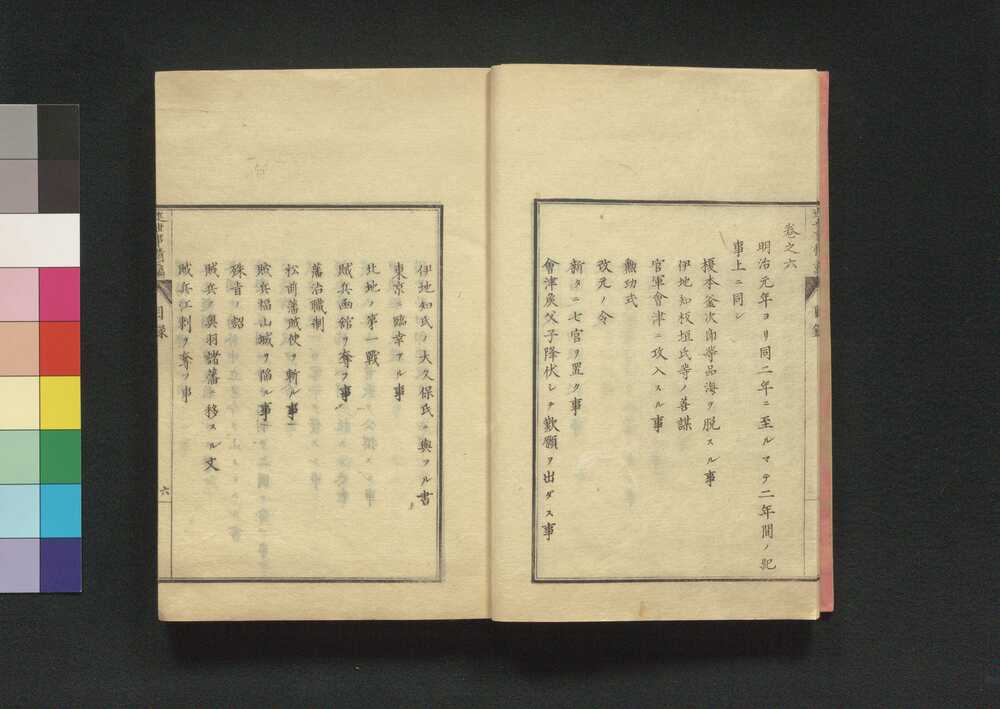 卷之六
明治元年ヨリ同二年ニ至ルマテ二年間ノ記
事上ニ同シ
榎本釜次郎等品海ヲ脱スル事
伊地知板垣氏等ノ善謀
官軍會津ニ攻入スル事
勲功式
改元ノ令
新タニ七官ヲ置ク事
會津矦父子降伏シテ歎願ヲ出ダス事
伊地知氏ノ大久保氏ニ與フル書
東京ニ臨幸アル事
北地ノ第一戰
賊兵函館ヲ奪フ事
藩治職制
松前藩賊使ヲ斬ル事
賊兵福山城ヲ陥ル事
殊旨ノ詔
賊兵ノ奥羽諸藩ニ移スル文
賊兵江刺ヲ奪フ事
目録
六